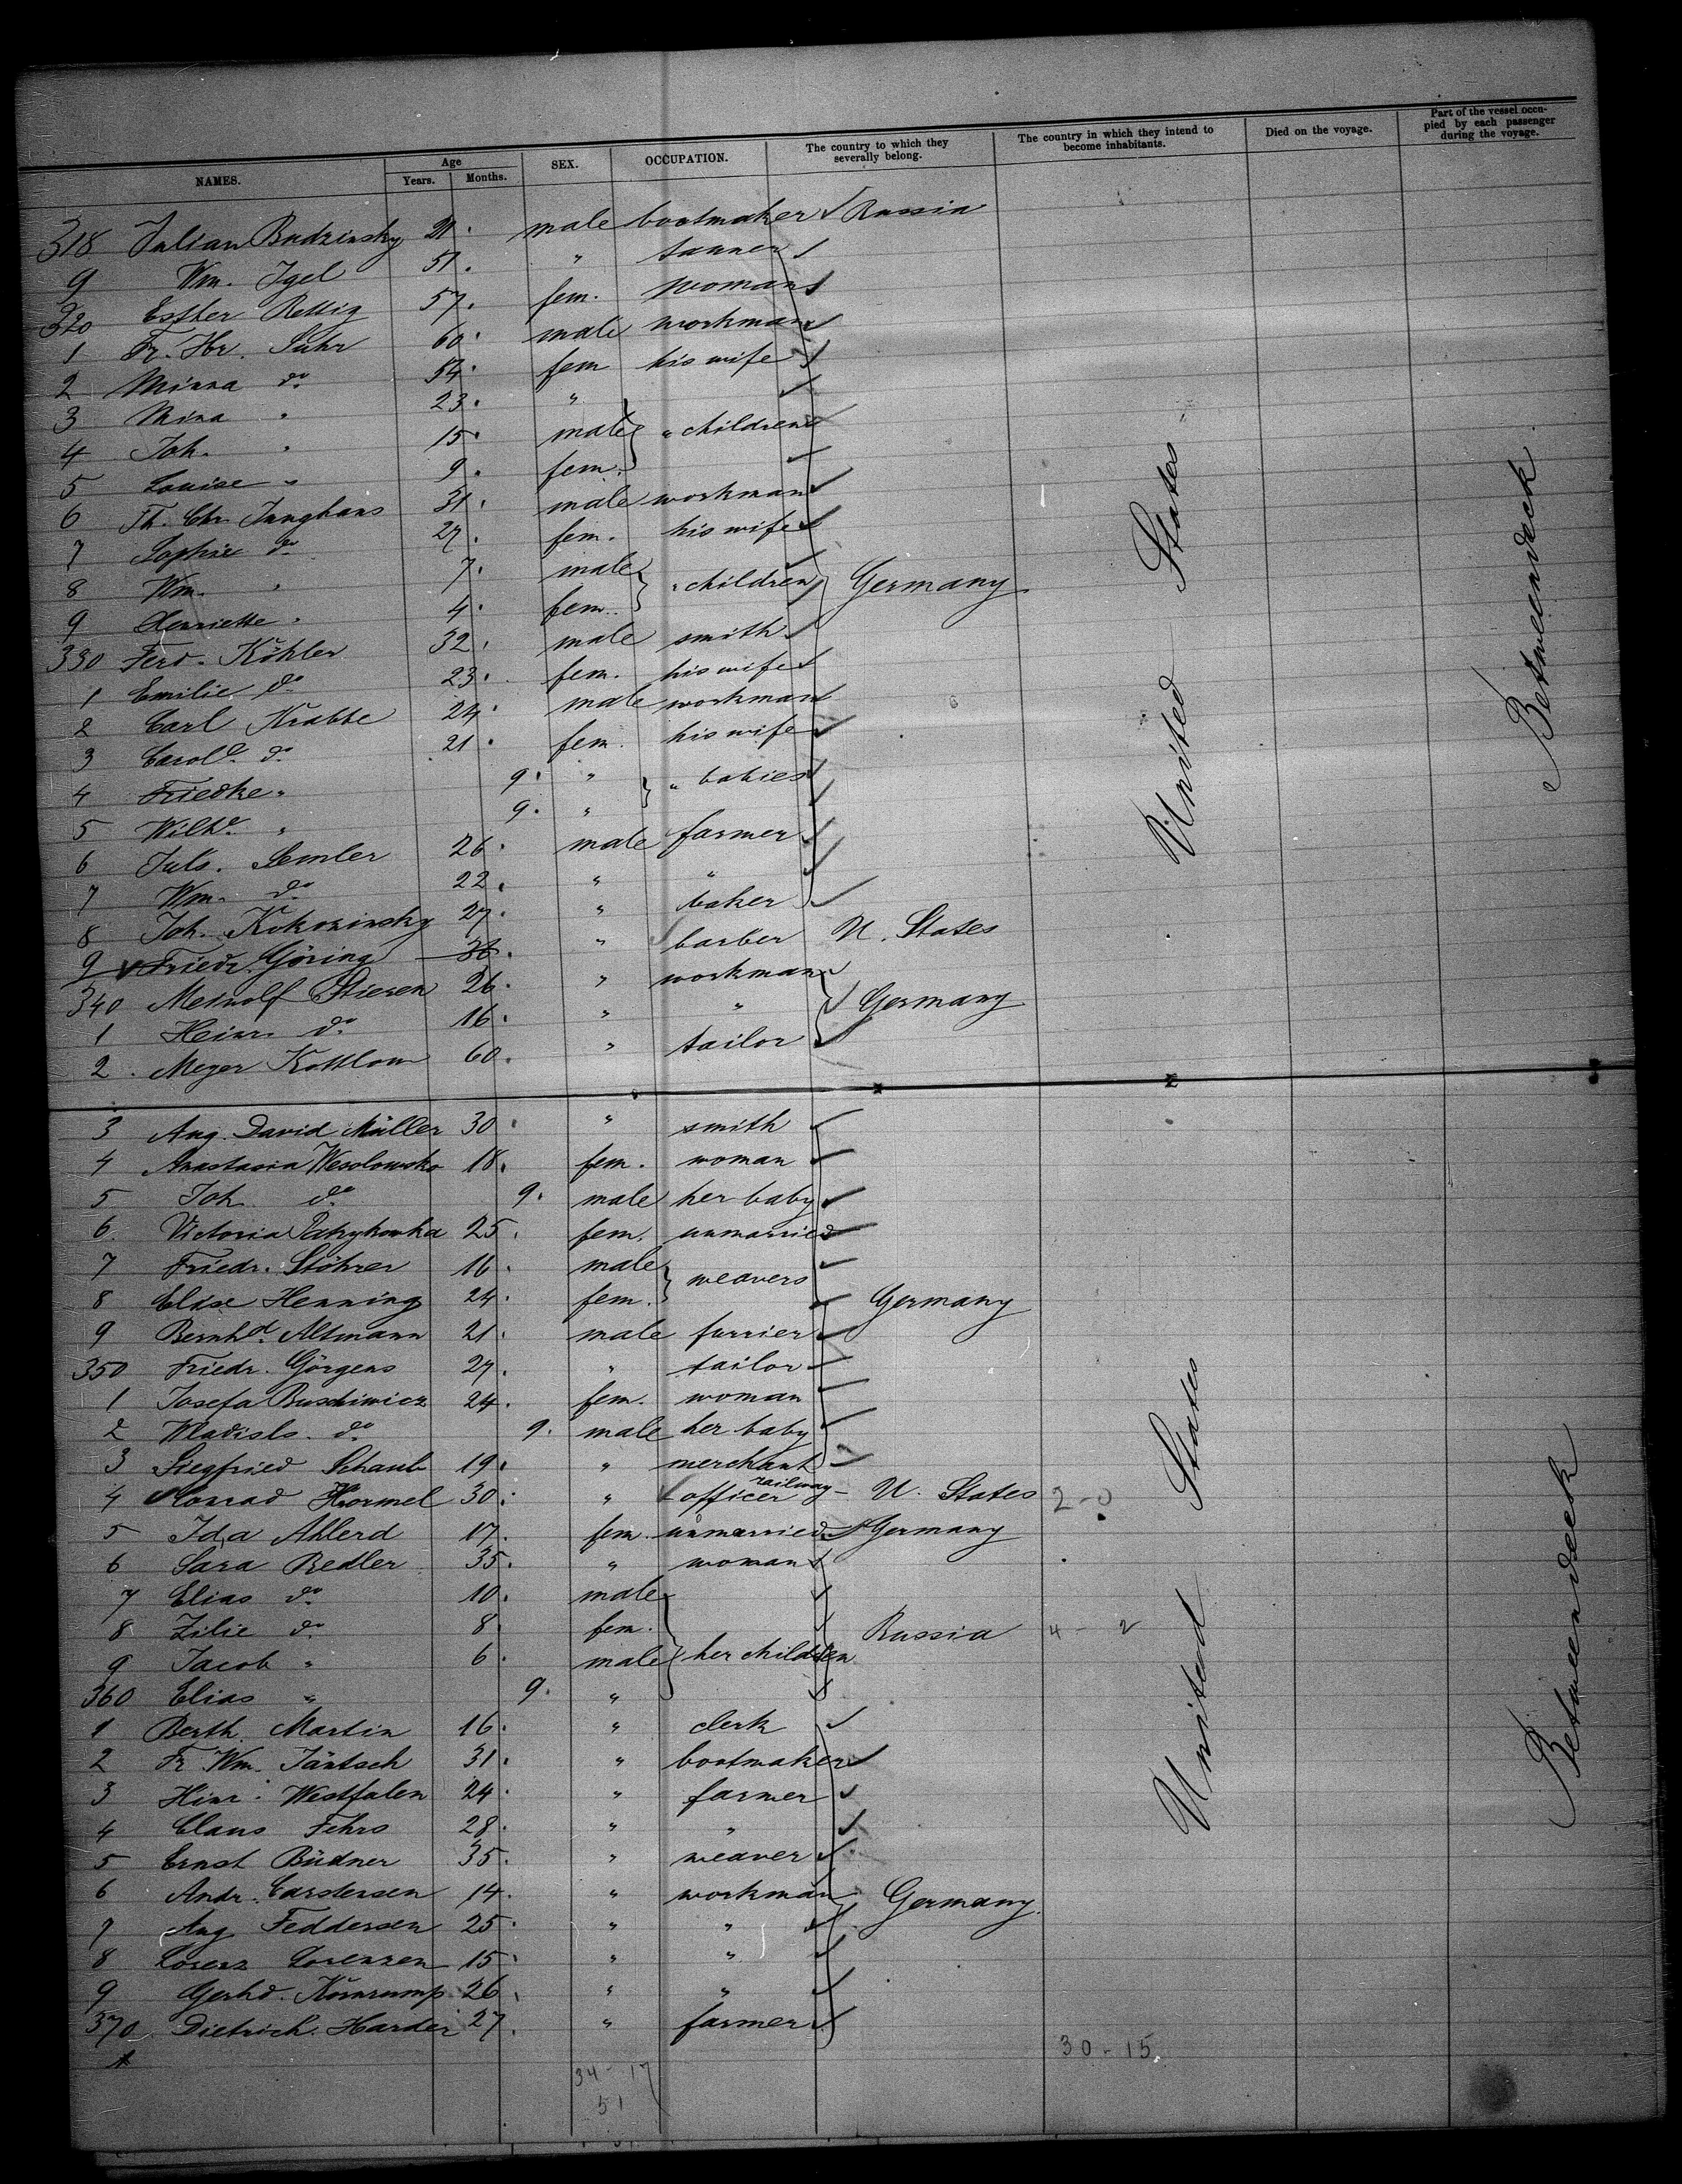 NAMES. Age Years. Months. SEX. OCCUPATION. The country to which they severally belong. The country in which they intend to become inhabitants. Died on the voyage. Part of the vessel occupied by each passenger during the voyage.
318 Julian Budzinsky 21 male bootmaker Russia
9 Wm. Igel 51. " tanner
320 Esther Rettig 57. fem. woman
1 Fr. Hr. Suhr 60. male workman
2 Minna do 54. fem his wife
3 Mina " 23. "
4 Joh. " 15. male " children
5 Louise " 9. fem.
6 Th. Chr. Junghans 31. male workman
7 Sophie do 27. fem. his wife
8 Wm. " 7. male " children Germany
9 Henriette " 4. fem.
330 Ferd. Köhler 32. male smith
1 Emilie do 23. fem. his wife
2 Carl Krabbe 24. male workman
3 Carole. do 21. fem. his wife
4 Friedke " 9. " " babies
5 Wilhe. " 9. "
6 Juls. Semler 26. male farmer
7 Wm. do 22. " "
8 Joh. Kokozinsky 27. " baker
9 Friedr. Göring 36. " barber U. States
340 Meinolf Stiesen 26. " workman Germany
1 Heinr. do 16. " "
2 Meyer Kottlow 60. " tailor
United States
Betweendeck
3 Aug. David Müller 30. " smith
4 Anastasia Wesolowska 18. fem. woman
5 Joh. do 9. male her baby
6. Victoria 25. fem. unmarried
7 Friedr. Stöhrer 16. male weavers
8 Elise Henning 24. fem. Germany
9 Bernhd. Altmann 21. male furrier
350 Friedr. Görgens 27. " tailor
1 Josefa 24. fem. woman
2 Wladisls. do 9. male her baby
3 Siegfried Schaub 19. " merchant
4 Konrad Hormel 30. " railway officer U. States 2-0
5 Ida Ahlerd 17. fem. unmarried Germany
6 Sara Redler 35. " woman
7 Elias do 10. male
8 Zilie do 8. fem. Russia 4-2
9 Jacob " 6. male her children
360 Elias " 9. "
1 Berth. Martin 16. " clerk
2 Fr. Wm. Jäntsch 31. " bootmaker
3 Hinr. Westfalen 24. " farmer
4 Claus Fehrs 28. " "
5 Ernst Büdner 35. " weaver
6 Andr. Carstersen 14. " workman Germany.
7 Aug Feddersen 25. " "
8 Lorenz Lorenzen 15. " "
9 Gerhd. Kornrump 26. " "
370 Dietrich Harder 27. " farmer
United States
Betweendeck
30-15.
34-17
51